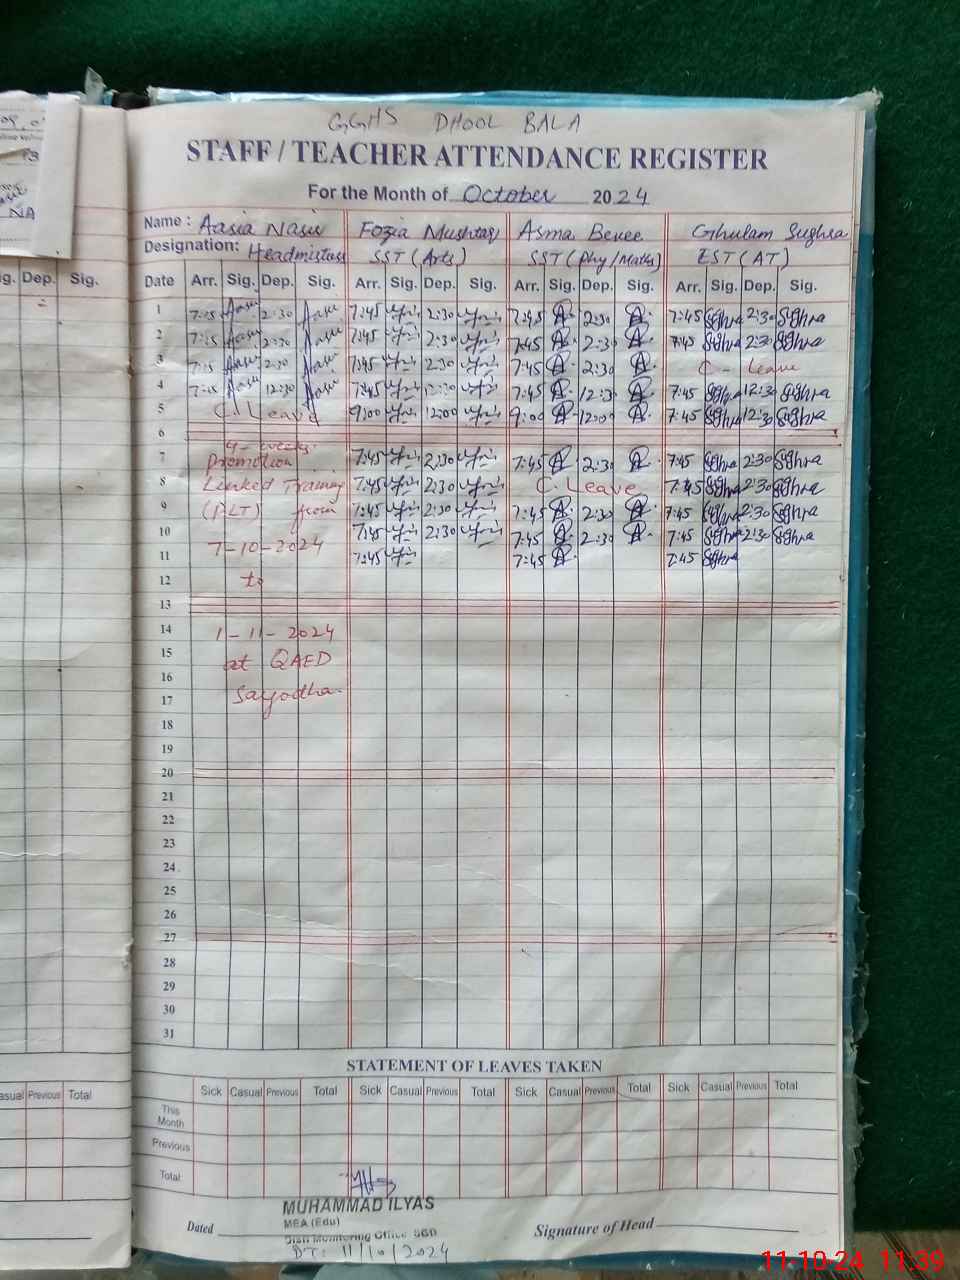 GGHS DHOOL BALA
STAFF / TEACHER ATTENDANCE REGISTER
For the Month of October 2024
Name : Aasia Nasir Fozia Mushtaq Asma Benee Ghulam Sughra
Designation: Headmistress SST (Arts) SST (Phy/Maths) EST (AT)
ig. Dep. Sig. Date Arr. Sig. Dep. Sig. Arr. Sig. Dep. Sig. Arr. Sig. Dep. Sig. Arr. Sig. Dep. Sig.
1 7:25 Aasia 2:30 Aasia 7:45 2:30 7:45 2:30 7:45 Sghra 2:30 Sghra
2 7:25 Aasia 2:30 Aasia 7:45 2:30 7:45 2:30 7:45 Sghra 2:30 Sghra
3 7:25 Aasia 2:30 Aasia 7:45 2:30 7:45 2:30 C - Leave
4 7:25 Aasia 12:30 Aasia 7:45 12:30 7:45 12:30 7:45 Sghra 12:30 Sghra
5 C. Leave 9:00 12:00 9:00 12:00 7:45 Sghra 12:30 Sghra
6
4- weeks
7 Promotion 7:45 2:30 7:45 2:30 7:45 Sghra 2:30 Sghra
8 Linked Training 7:45 2:30 C. Leave 7:45 Sghra 2:30 Sghra
9 (PLT) from 7:45 2:30 7:45 2:30 7:45 Sghra 2:30 Sghra
10 7-10-2024 7:45 2:30 7:45 2:30 7:45 Sghra 2:30 Sghra
11 7:45 7:45 7:45 Sghra
12 to
13
14 1-11-2024
15 at QAED
16
17 Sargodha.
18
19
20
21
22
23
24
25
26
27
28
29
30
31
STATEMENT OF LEAVES TAKEN
asual Previous Total Sick Casual Previous Total Sick Casual Previous Total Sick Casual Previous Total Sick Casual Previous Total
This Month
Previous
Total
MUHAMMAD ILYAS
MEA (Edu)
Distt Monitoring Office SGD
Dated Signature of Head
DT: 11/10/2024
11-10-24 11:39